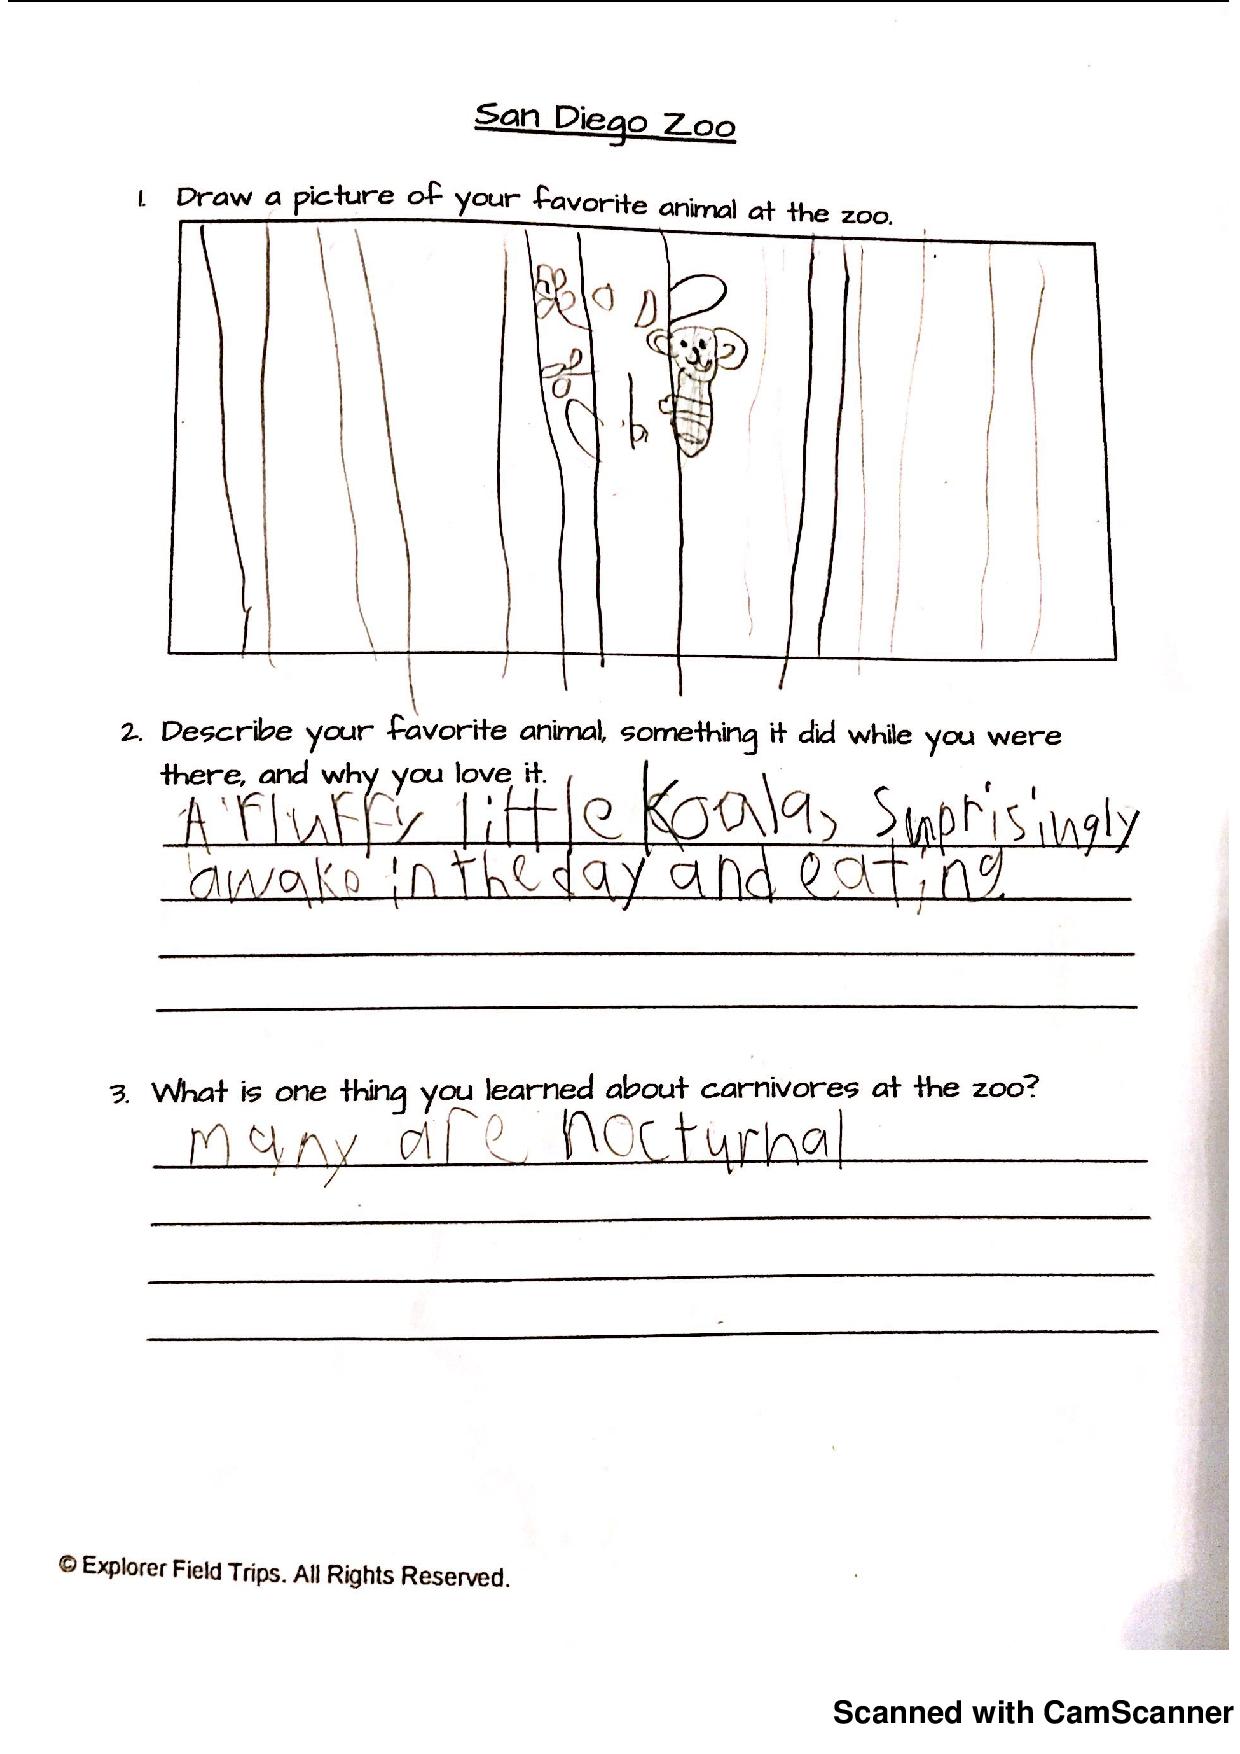 San Diego Zoo
1. Draw a picture of your favorite animal at the zoo.
2. Describe your favorite animal, something it did while you were
there, and why you love it.
A fluffy little koala, Surprisingly
awake in the day and eating
3. What is one thing you learned about carnivores at the zoo?
many are nocturnal
© Explorer Field Trips. All Rights Reserved.
Scanned with CamScanner